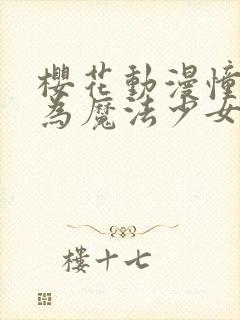 櫻花動漫憧
為魔法少女
樓十七